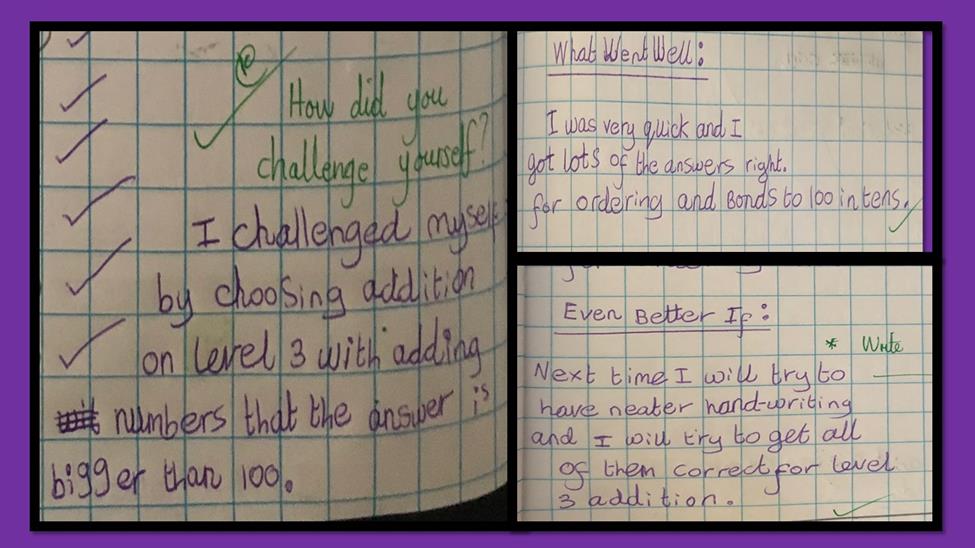 How did you
challenge yourself?
I challenged myself
by choosing addition
on level 3 with adding
numbers that the answer is
bigger than 100.
What Went Well:
I was very quick and I
got lots of the answers right.
for ordering and Bonds to 100 in tens.
Even Better If:
* Write
Next time I will try to
have neater hand-writing
and I will try to get all
of them correct for level
3 addition.